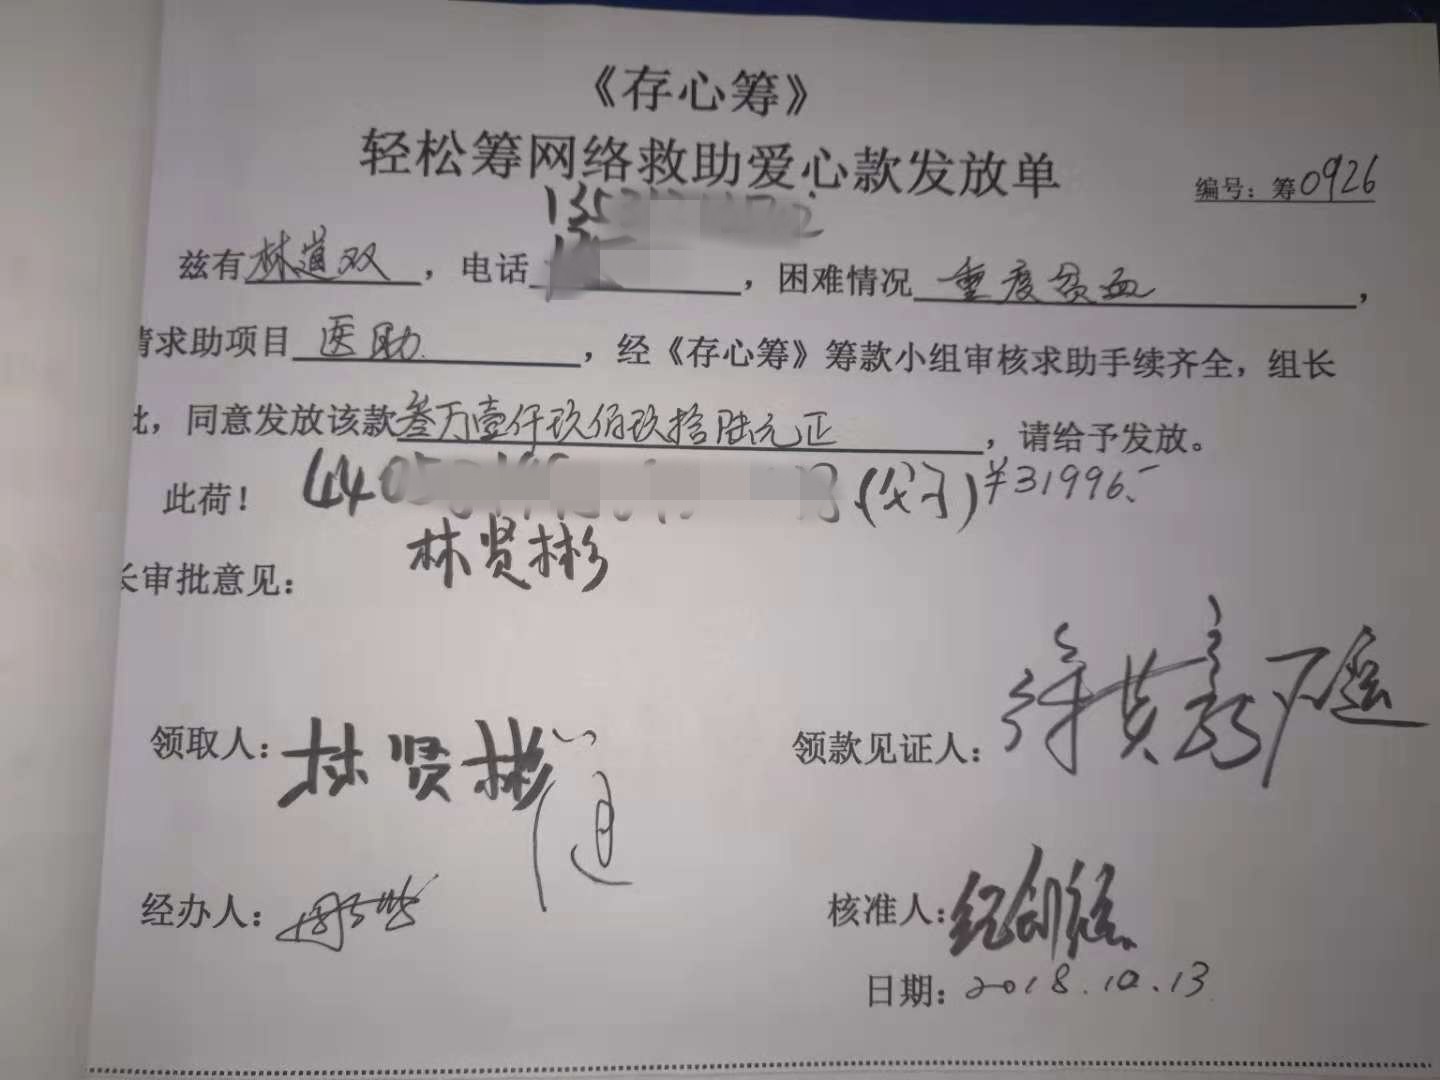 《存心筹》
轻松筹网络救助爱心款发放单
编号：筹0926
兹有林道双，电话，困难情况重度贫血，
请求助项目医助，经《存心筹》筹款小组审核求助手续齐全，组长
批，同意发放该款叁万壹仟玖佰玖拾陆元正，请给予发放。
此荷！ (父子)¥31996.-
林贤彬
长审批意见：
领取人：林贤彬 领款见证人：
经办人： 核准人：
日期：2018.10.13